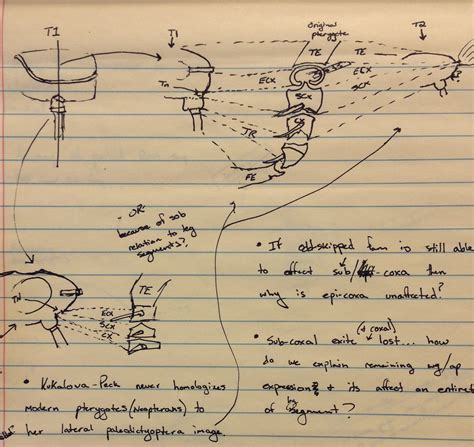 T1
T1
Tn
original
pterygote
TE
TE
TE
ECX
ECX
SCX
SCX
CX
TR
FE
T2
- OR
because of sob
relation to leg
segments?
TN
TE
ECX
SCX
CX
• If odd-skipped fam is still able
to effect sub/ -coxa then
why is epi-coxa unaffected?
(& coxal)
• Sub-coxal exite lost... how
do we explain remaining wg/ap
expression & its affect on entire
of by segment?
• Kukalova-Peck never homologizes
modern pterygotes (Neopterans) to
her lateral paleodictyoptera image.